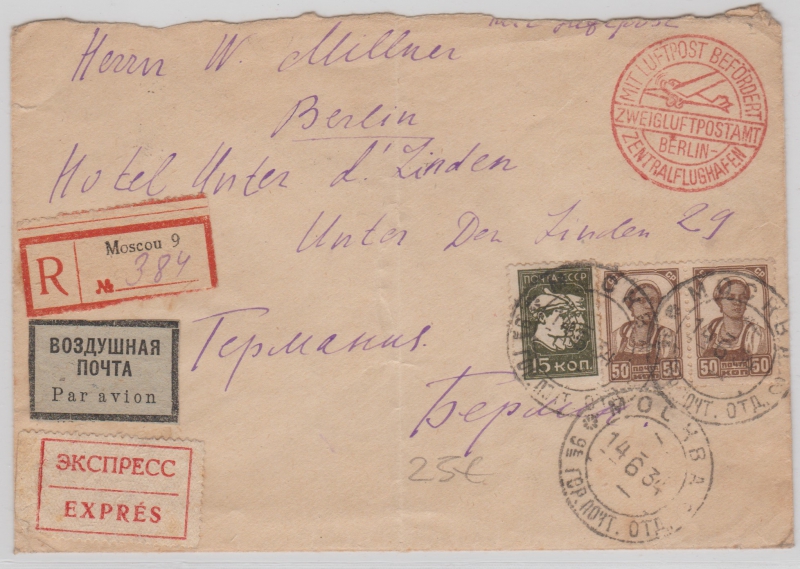 mit Luftpost
Herrn W. Millner
Berlin
Hotel Unter d. Linden
Unter Den Linden 29
Германия.
Берлин.
25€
MIT LUFTPOST BEFÖRDERT
ZWEIGLUFTPOSTAMT
BERLIN-
ZENTRALFLUGHAFEN
R
Moscou 9
№ 384
ВОЗДУШНАЯ
ПОЧТА
Par avion
ЭКСПРЕСС
EXPRÉS
ПОЧТА СССР
15 КОП
50 ПОЧТА КОП 50
50 ПОЧТА КОП 50
МОСКВА
14
ПОЧТ. ОТД.
МОСКВА
14 6 34
ГОР. ПОЧТ. ОТД.